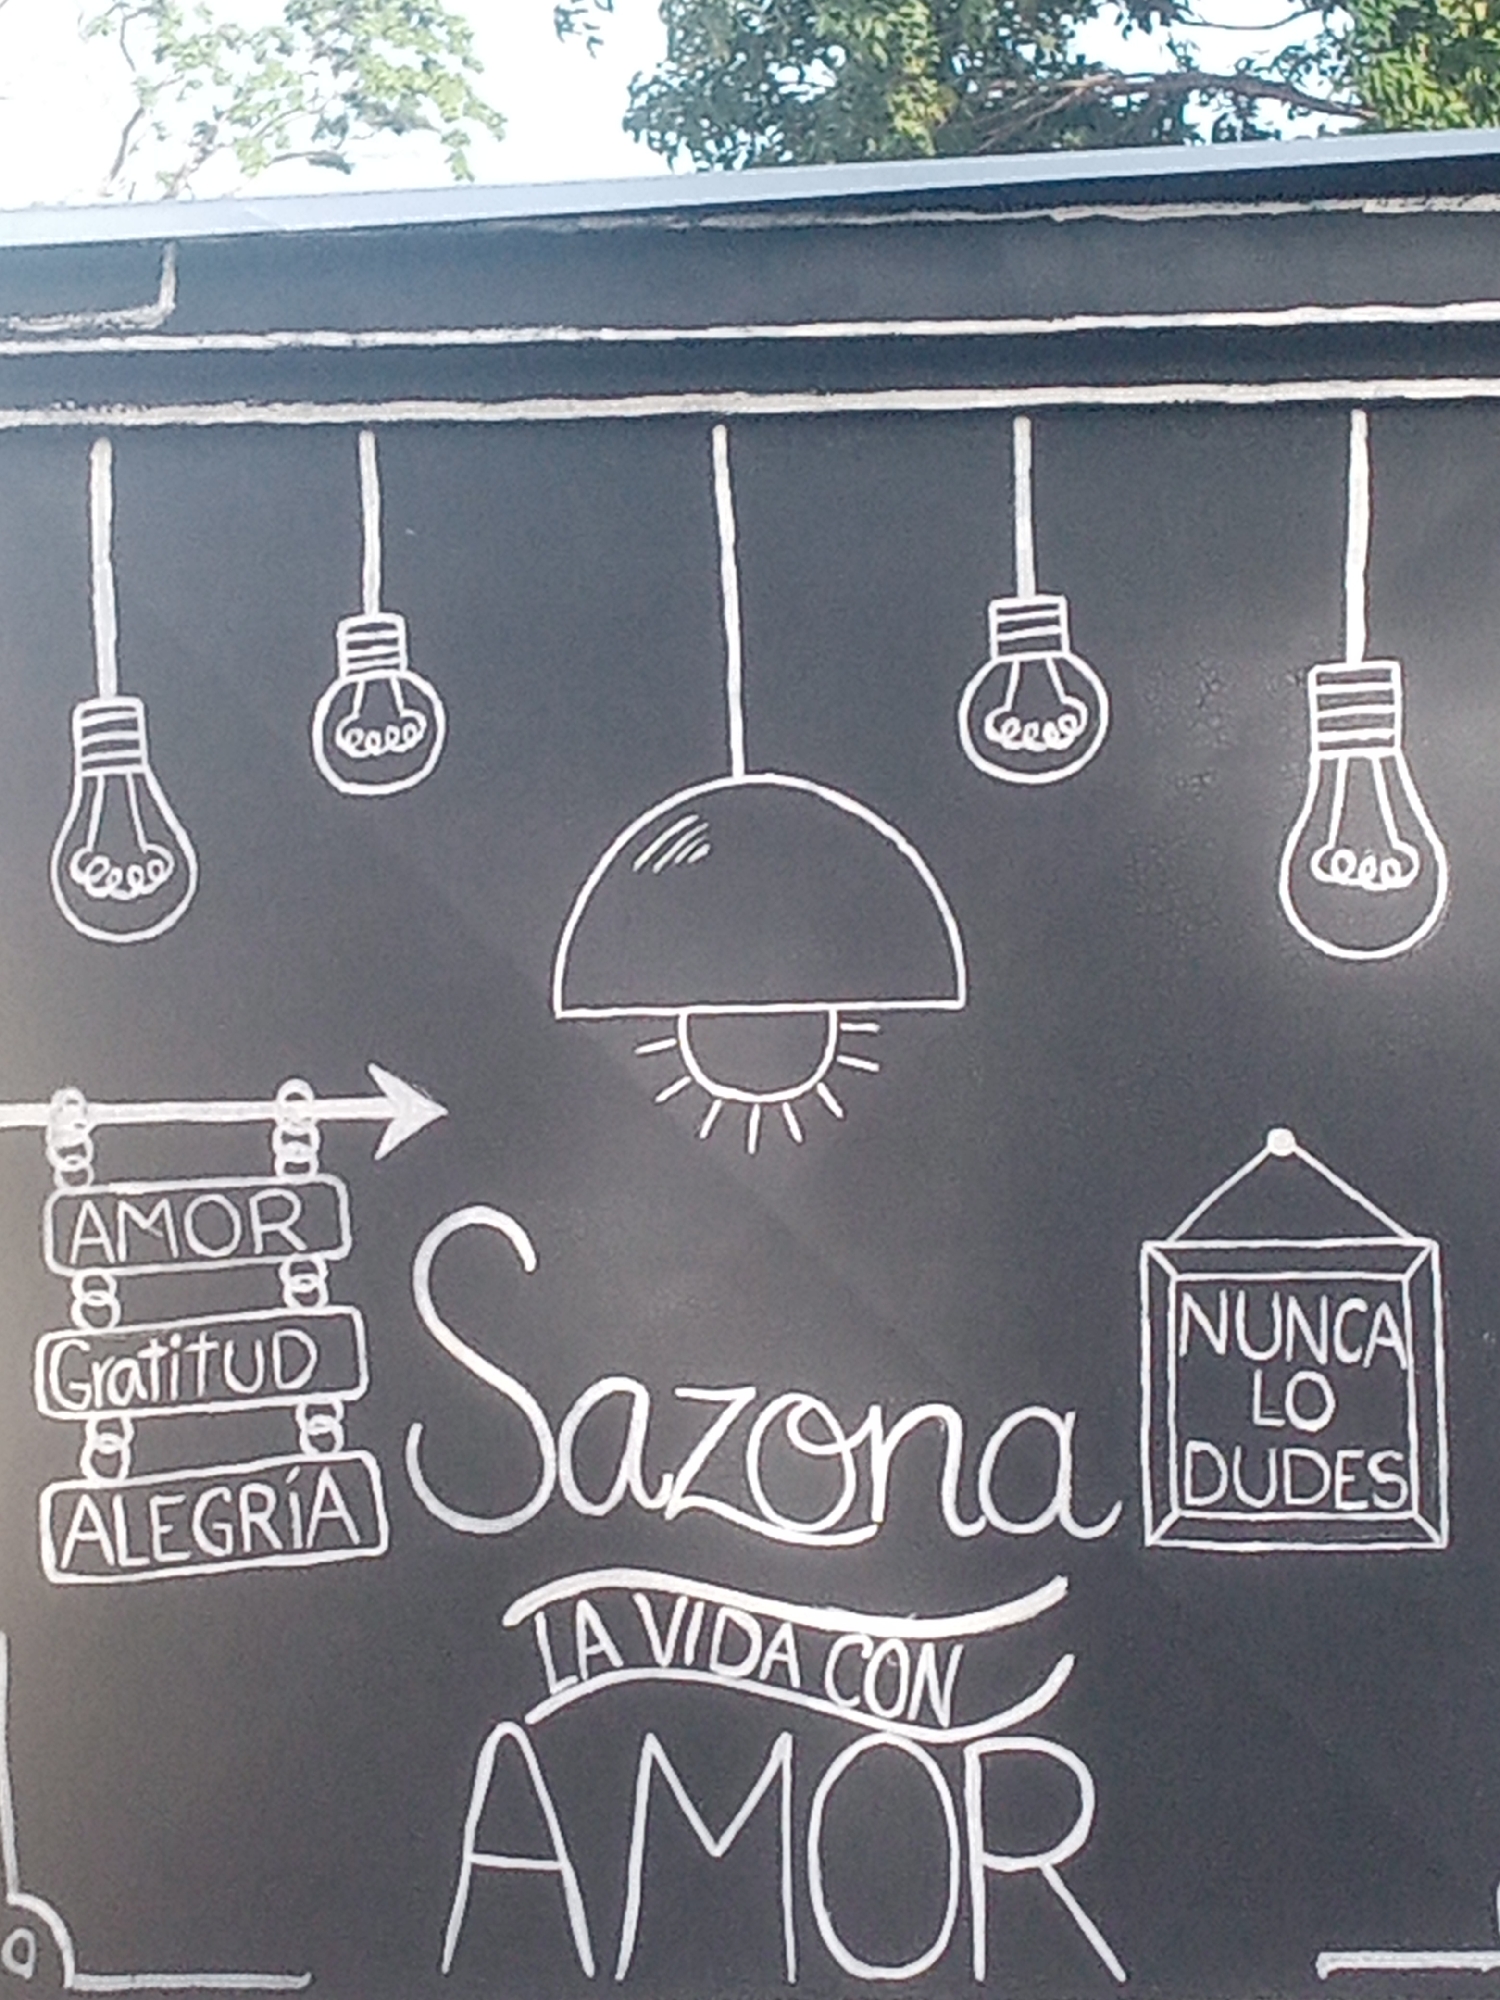 AMOR
GratitUD
ALEGRíA
Sazona
LA VIDA CON
AMOR
NUNCA
LO
DUDES